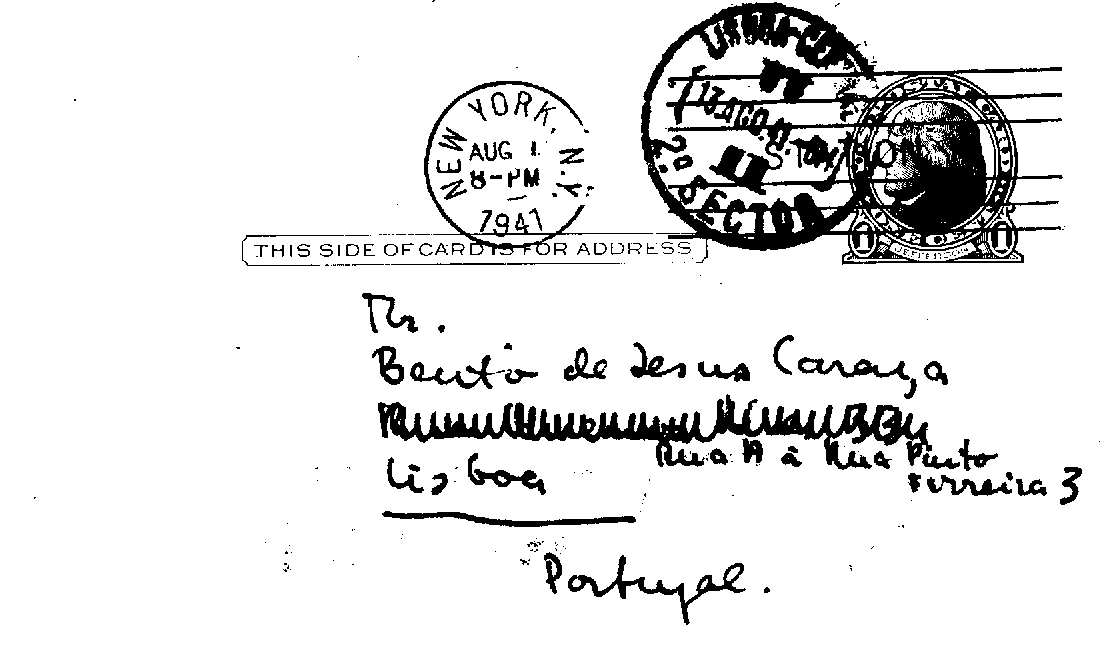 NEW YORK, N.Y.
AUG 1
8-PM
1941
LISBOA-CEN
13.AGO.41
2º SECTOR
THIS SIDE OF CARD IS FOR ADDRESS
JEFFERSON
Mr.
Bento de Jesus Caraça
Rua A à Rua Pinto
Ferreira 3
Lisboa
Portugal.